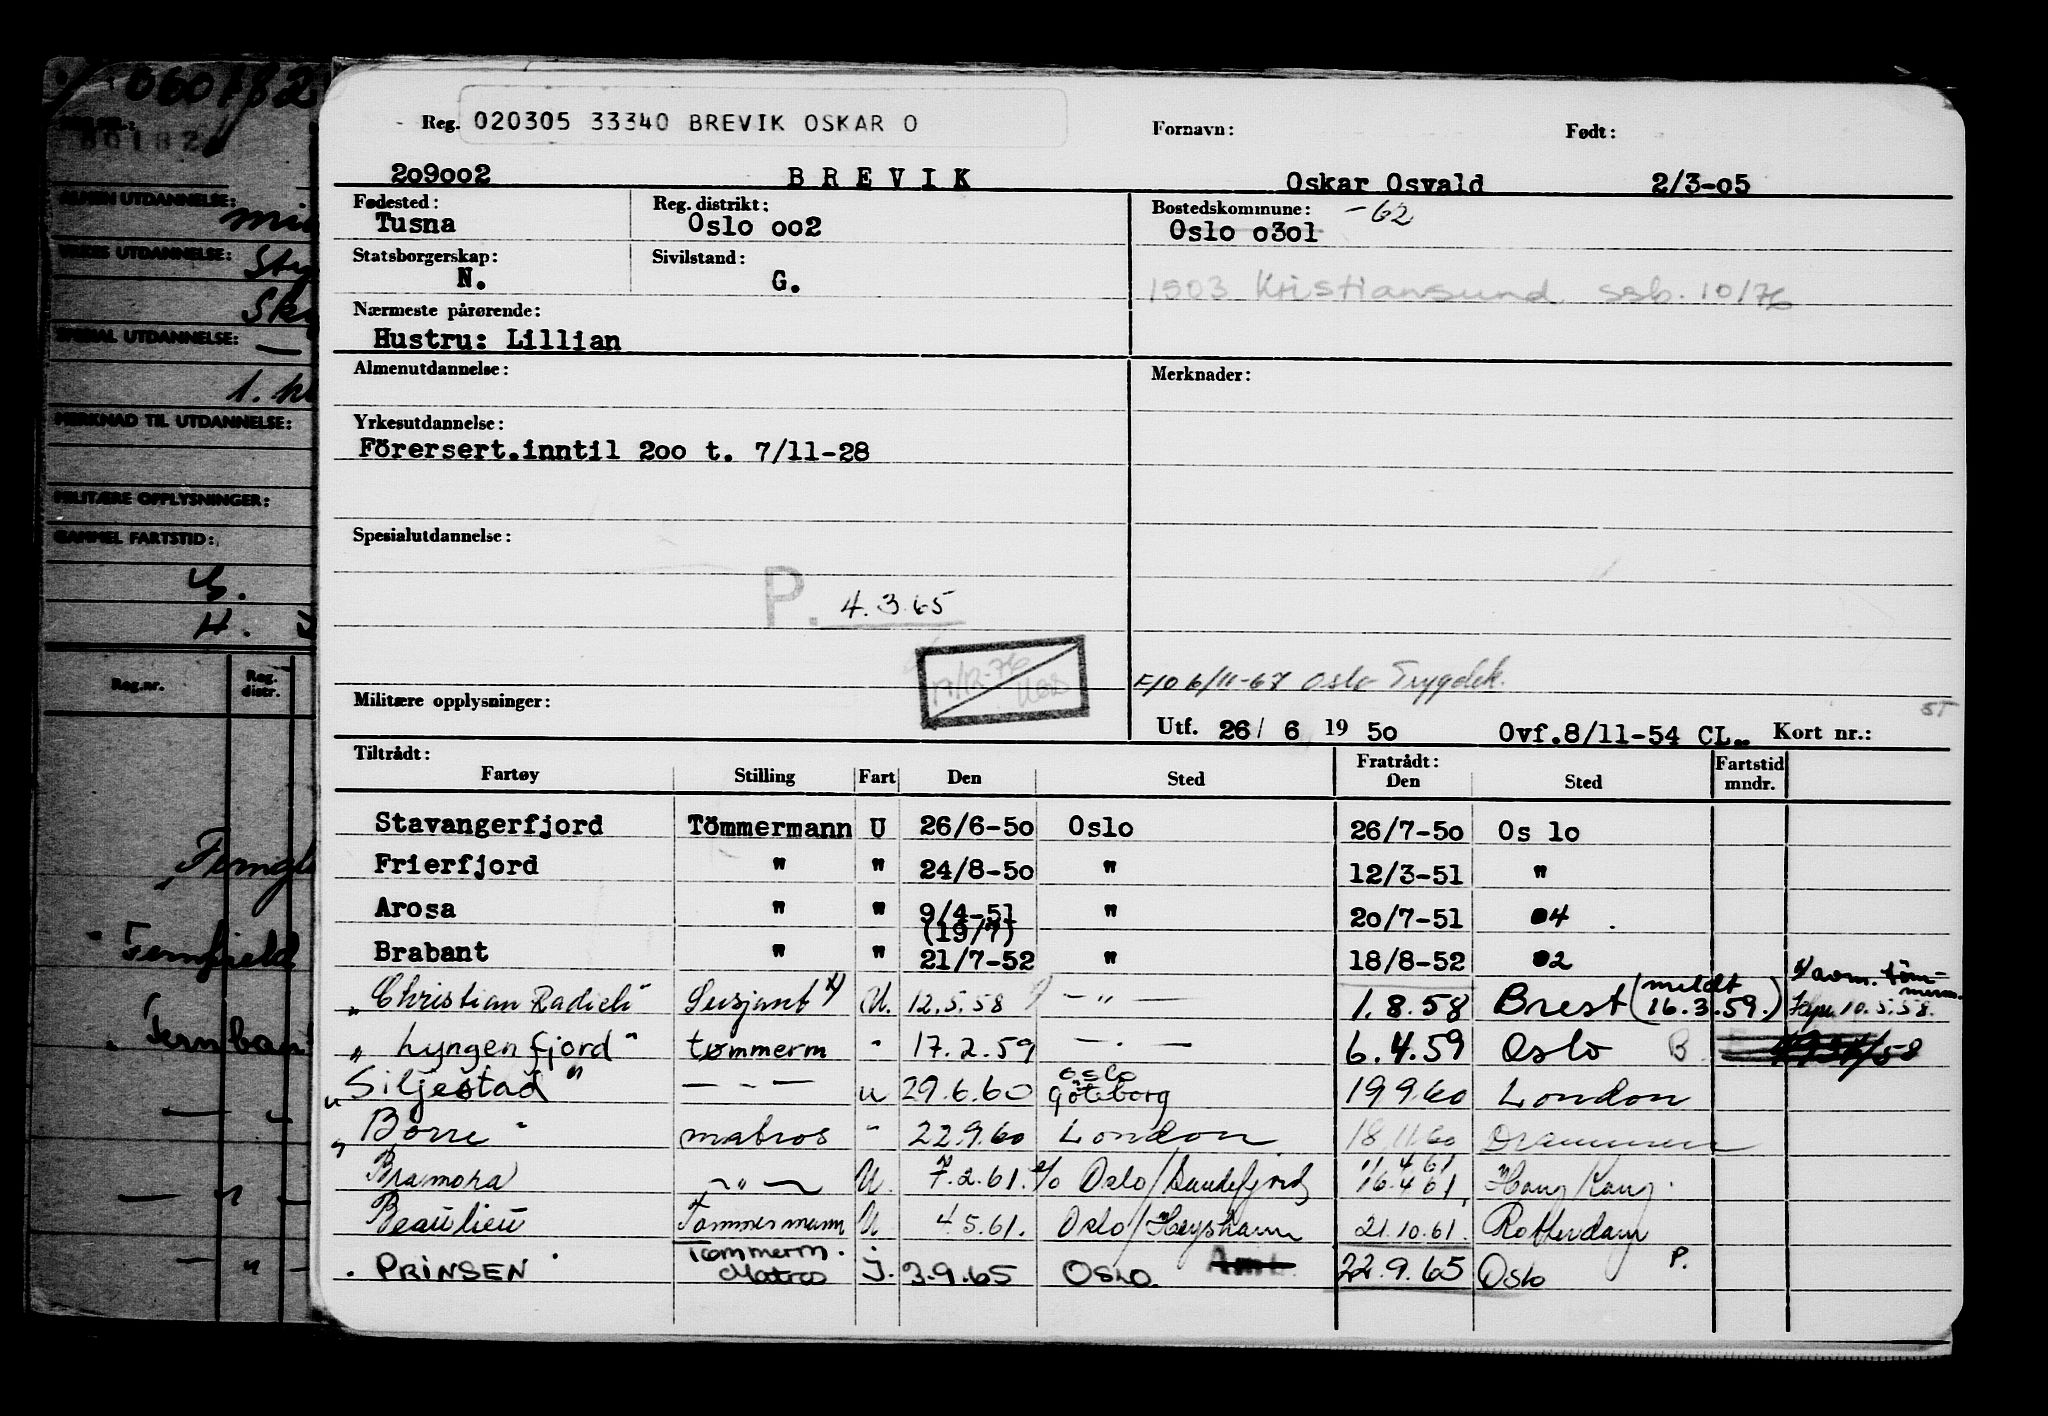 060182
00182
ALMEN UTDANNELSE:
YRKES UTDANNELSE:
SPESIAL UTDANNELSE: —
MERKNAD TIL UTDANNELSE:
MILITÆRE OPPLYSNINGER:
GAMMEL FARTSTID:
H.
Reg.nr. Reg. distr.
Reg. 020305 33340 BREVIK OSKAR O Fornavn: Født:
209002 BREVIK Oskar Osvald 2/3-05
Fødested: Reg. distrikt: Bostedskommune: -62
Tusna Oslo 002 Oslo 0301
Statsborgerskap: Sivilstand:
N. G. 1503 Kristiansund ssb. 10/76
Nærmeste pårørende:
Hustru: Lillian
Almenutdannelse: Merknader:
Yrkesutdannelse:
Förersert.inntil 200 t. 7/11-28
Spesialutdannelse:
P. 4.3.65
F/O 6/11-67 Oslo Trygdek.
Militære opplysninger: ST
Utf. 26/ 6 19 50 Ovf.8/11-54 CL. Kort nr.:
Tiltrådt: Fratrådt: Fartstid
Fartøy Stilling Fart Den Sted Den Sted mndr.
Stavangerfjord Tömmermann U 26/6-50 Oslo 26/7-50 Os lo
Frierfjord " " 24/8-50 " 12/3-51 "
Arosa " " 9/4-51 " 20/7-51 04
(19/7)
Brabant " " 21/7-52 " 18/8-52 02
"Christian Radich" Sersjant x) U. 12.5.58 — " — 1.8.58 Brest (meldt 16.3.59.) x) avm. töm-merm. 10.5.58.
"Lyngenfjord" tømmerm " 17.2.59 — . — 6.4.59 Oslo B
"Siljestad" — - — u 29.6.60 Oslo Göteborg 19 9.60 London
"Borre" matros " 22.9.60 London 18.11.60 Drammen
11.4.61
Bramora — " — U. 7.2.61. Oslo/Sandefjord 16.4.61. Hong Kong.
Beaulieu Tømmermann U 4.5.61. Oslo/Heysham 21.10.61. Rotterdam
Tømmerm.
. PRINSEN Matros J. 3.9.65 OSLO. 22.9.65 Oslo P.